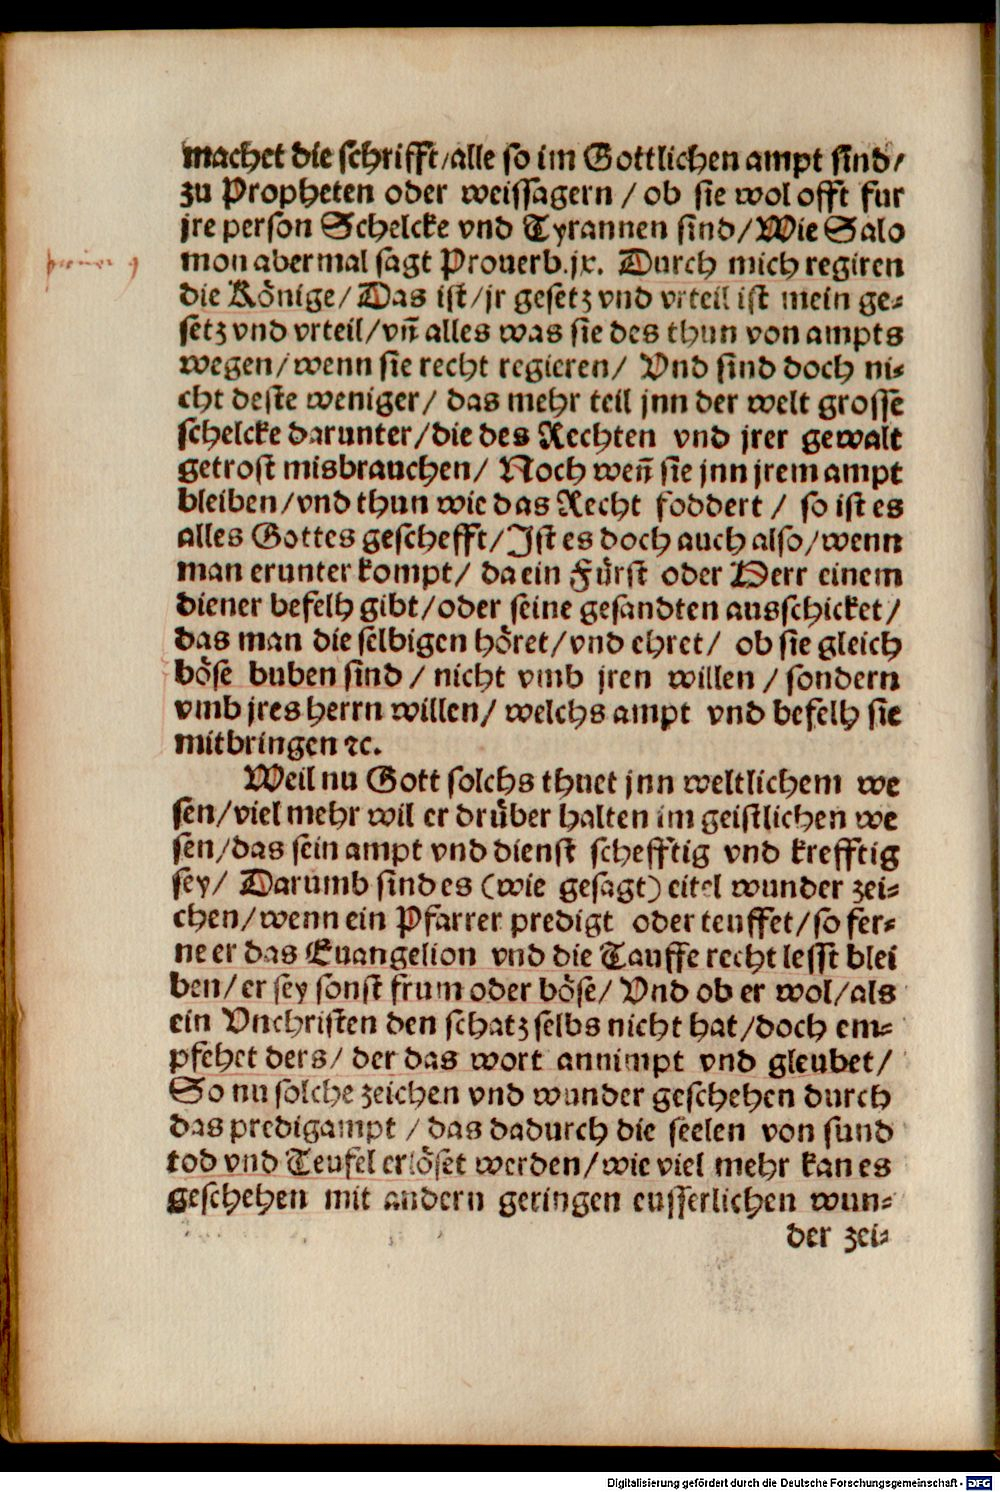 machet die schrifft/alle so im Gottlichen ampt sind/
zu Propheten oder weissagern / ob sie wol offt fur
jre person Schelcke vnd Tyrannen sind/Wie Salo
mon abermal sagt Prouerb.jx. Durch mich regiren
die Könige/Das ist/jr gesetz vnd vrteil ist mein ge⸗
setz vnd vrteil/vn̄ alles was sie des thun von ampts
wegen/wenn sie recht regieren/ Vnd sind doch ni⸗
cht deste weniger/ das mehr teil jnn der welt grosse
schelcke darunter/die des Rechten vnd jrer gewalt
getrost misbrauchen/ Noch wen̄ sie jnn jrem ampt
bleiben/vnd thun wie das Recht foddert / so ist es
alles Gottes geschefft/Ist es doch auch also/wenn
man erunter kompt/ da ein Fürst oder Herr einem
diener befelh gibt/oder seine gesandten ausschicket/
das man die selbigen höret/vnd ehret/ ob sie gleich
böse buben sind / nicht vmb jren willen / sondern
vmb jres herrn willen/ welchs ampt vnd befelh sie
mitbringen ꝛc.
Weil nu Gott solchs thuet jnn weltlichem we
sen/viel mehr wil er drüber halten im geistlichen we
sen/das sein ampt vnd dienst schefftig vnd krefftig
sey/ Darumb sind es (wie gesagt) eitel wunder zei⸗
chen/wenn ein Pfarrer predigt oder teuffet/so fer⸗
ne er das Euangelion vnd die Tauffe recht lesst blei
ben/er sey sonst frum oder böse/ Vnd ob er wol/als
ein Vnchristen den schatz selbs nicht hat/doch em⸗
pfehet ders/ der das wort annimpt vnd gleubet/
So nu solche zeichen vnd wunder geschehen durch
das predigampt / das dadurch die seelen von sund
tod vnd Teufel erlöset werden/wie viel mehr kan es
geschehen mit andern geringen eusserlichen wun⸗
der zei⸗
Digitalisierung gefördert durch die Deutsche Forschungsgemeinschaft - DFG